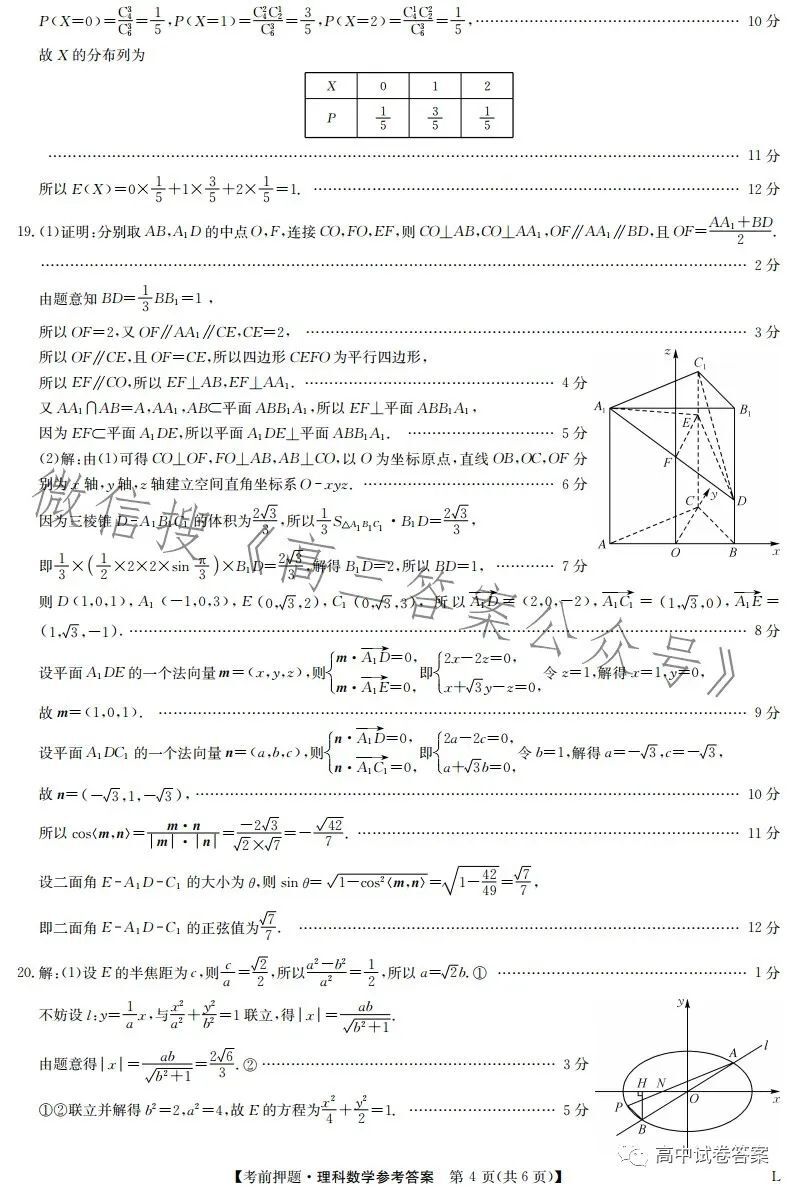 P(X=0)=C₄³/C₆³=1/5,P(X=1)=C₄²C₂¹/C₆³=3/5,P(X=2)=C₄¹C₂²/C₆³=1/5,…… 10 分
故 X 的分布列为
X 0 1 2
P 1/5 3/5 1/5
…… 11 分
所以 E(X)=0×1/5+1×3/5+2×1/5=1. …… 12 分
19.(1)证明:分别取 AB,A₁D 的中点 O,F,连接 CO,FO,EF,则 CO⊥AB,CO⊥AA₁,OF∥AA₁∥BD,且 OF=(AA₁+BD)/2.
…… 2 分
由题意知 BD=1/3BB₁=1 ,
所以 OF=2,又 OF∥AA₁∥CE,CE=2, …… 3 分
所以 OF∥CE,且 OF=CE,所以四边形 CEFO 为平行四边形,
所以 EF∥CO,所以 EF⊥AB,EF⊥AA₁. …… 4 分
又 AA₁∩AB=A,AA₁,AB⊂平面 ABB₁A₁,所以 EF⊥平面 ABB₁A₁,
因为 EF⊂平面 A₁DE,所以平面 A₁DE⊥平面 ABB₁A₁. …… 5 分
(2)解:由(1)可得 CO⊥OF,FO⊥AB,AB⊥CO,以 O 为坐标原点,直线 OB,OC,OF 分
别为 x 轴,y 轴,z 轴建立空间直角坐标系 O-xyz. …… 6 分
z
C₁
A₁
B₁
E
F
C
y
D
A
O
B
x
因为三棱锥 D-A₁B₁C₁ 的体积为2√3/3,所以1/3S△A₁B₁C₁·B₁D=2√3/3,
即1/3×(1/2×2×2×sin π/3)×B₁D=2√3/3,解得 B₁D=2,所以 BD=1, …… 7 分
则 D(1,0,1), A₁(-1,0,3), E(0,√3,2), C₁(0,√3,3), 所以 A₁D→=(2,0,-2), A₁C₁→=(1,√3,0), A₁E→=
(1,√3,-1). …… 8 分
设平面 A₁DE 的一个法向量 m=(x,y,z),则{m·A₁D→=0, m·A₁E→=0, 即{2x-2z=0, x+√3y-z=0, 令 z=1,解得 x=1,y=0,
故 m=(1,0,1). …… 9 分
设平面 A₁DC₁ 的一个法向量 n=(a,b,c),则{n·A₁D→=0, n·A₁C₁→=0, 即{2a-2c=0, a+√3b=0, 令 b=1,解得 a=-√3,c=-√3,
故 n=(-√3,1,-√3), …… 10 分
所以 cos⟨m,n⟩=m·n/(|m|·|n|)=-2√3/(√2×√7)=-√42/7. …… 11 分
设二面角 E-A₁D-C₁ 的大小为 θ,则 sin θ=√(1-cos²⟨m,n⟩)=√(1-42/49)=√7/7,
即二面角 E-A₁D-C₁ 的正弦值为√7/7. …… 12 分
20.解:(1)设 E 的半焦距为 c,则c/a=√2/2,所以(a²-b²)/a²=1/2,所以 a=√2b.① …… 1 分
不妨设 l:y=1/a x,与x²/a²+y²/b²=1 联立,得|x|=ab/√(b²+1).
由题意得|x|=ab/√(b²+1)=2√6/3.② …… 3 分
①②联立并解得 b²=2,a²=4,故 E 的方程为x²/4+y²/2=1. …… 5 分
y
l
A
H
N
O
x
P
B
微信搜《高三答案公众号》
高中试卷答案
【考前押题·理科数学参考答案 第 4 页(共 6 页)】 L